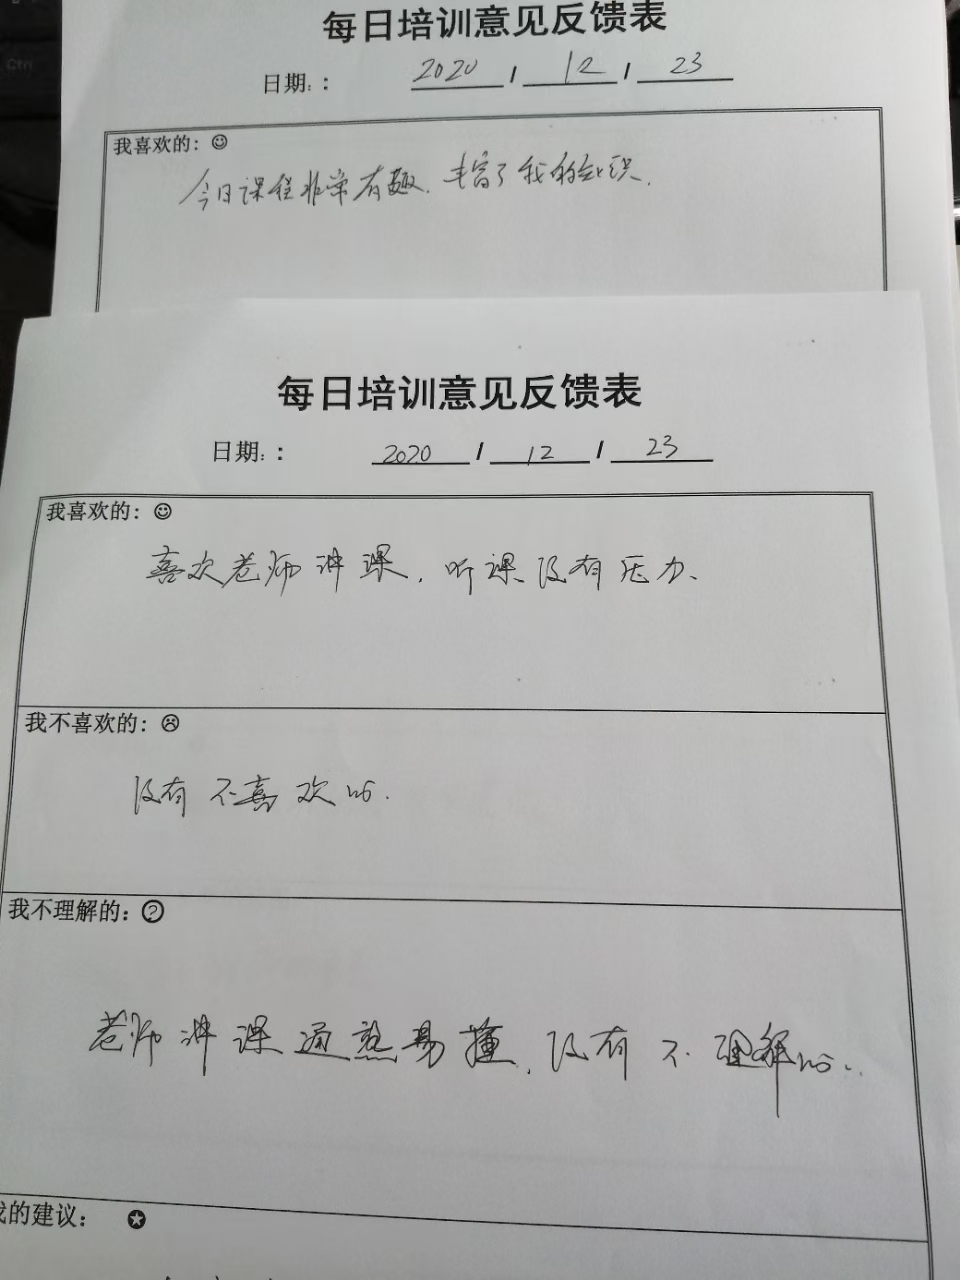 Ctrl
每日培训意见反馈表
日期:： 2020 / 12 / 23
我喜欢的：☺
今日课程非常有趣.丰富了我的知识.
每日培训意见反馈表
日期:： 2020 / 12 / 23
我喜欢的：☺
喜欢老师讲课，听课没有压力、
我不喜欢的：☹
没有不喜欢的.
我不理解的：?
老师讲课通熟易撞，没有不理解的..
我的建议：★